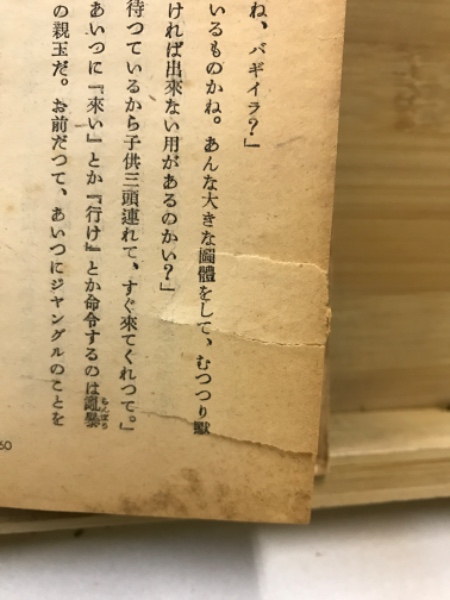 ね、バギイラ？」
いるものかね。あんな大きな圖體をして、むつつり默
ければ出來ない用があるのかい？」
待つているから子供三頭連れて、すぐ來てくれつて。」
あいつに『來い』とか『行け』とか命令するのは亂暴
らんぼう
の親玉だ。お前だつて、あいつにジャングルのことを
60